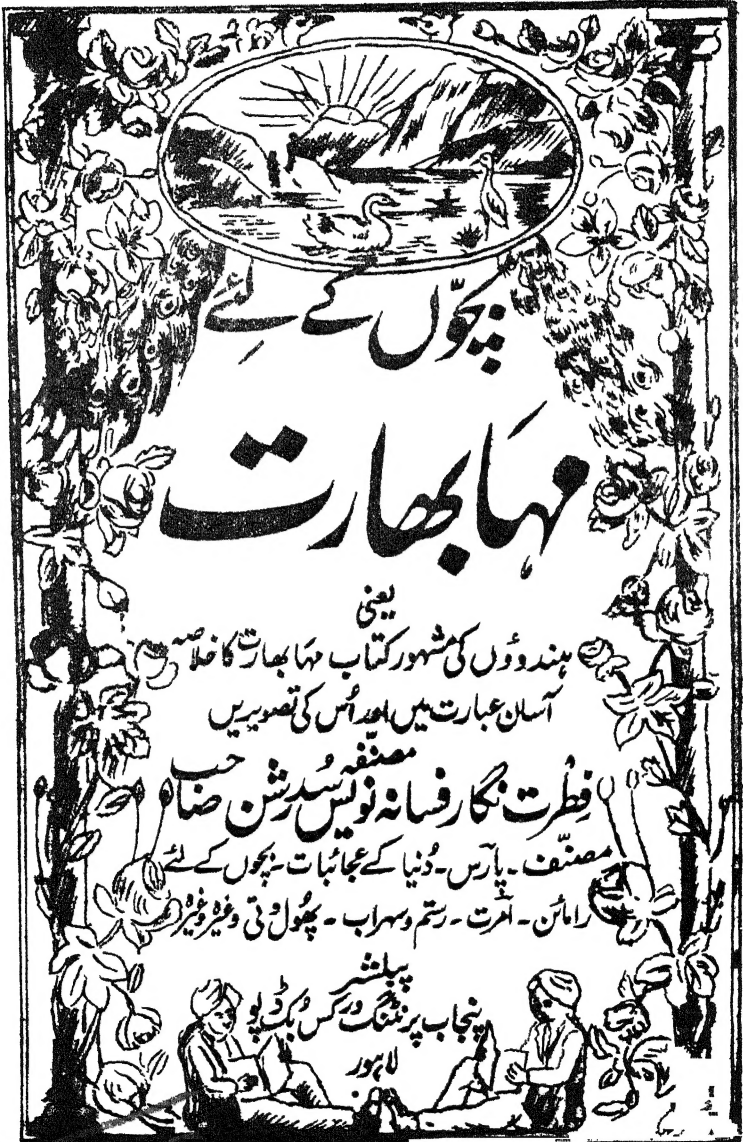 بچّوں کے لئے
مہابھارت
یعنی
ہندوؤں کی مشہور کتاب مہابھارت کا خلاصہ
آسان عبارت میں اور اُس کی تصویریں
مصنّفہ
فِطرت نگار فسانہ نویس سُدرشن صاحب
مصنّف ۔ پارس ۔ دُنیا کے عجائبات ۔ بچّوں کے لئے
رامائن ۔ امرت ۔ رستم و سہراب ۔ پھُول وتی وغیرہ وغیرہ
پبلشر
پنجاب پرنٹنگ ورکس بُک ڈپو
لاہور